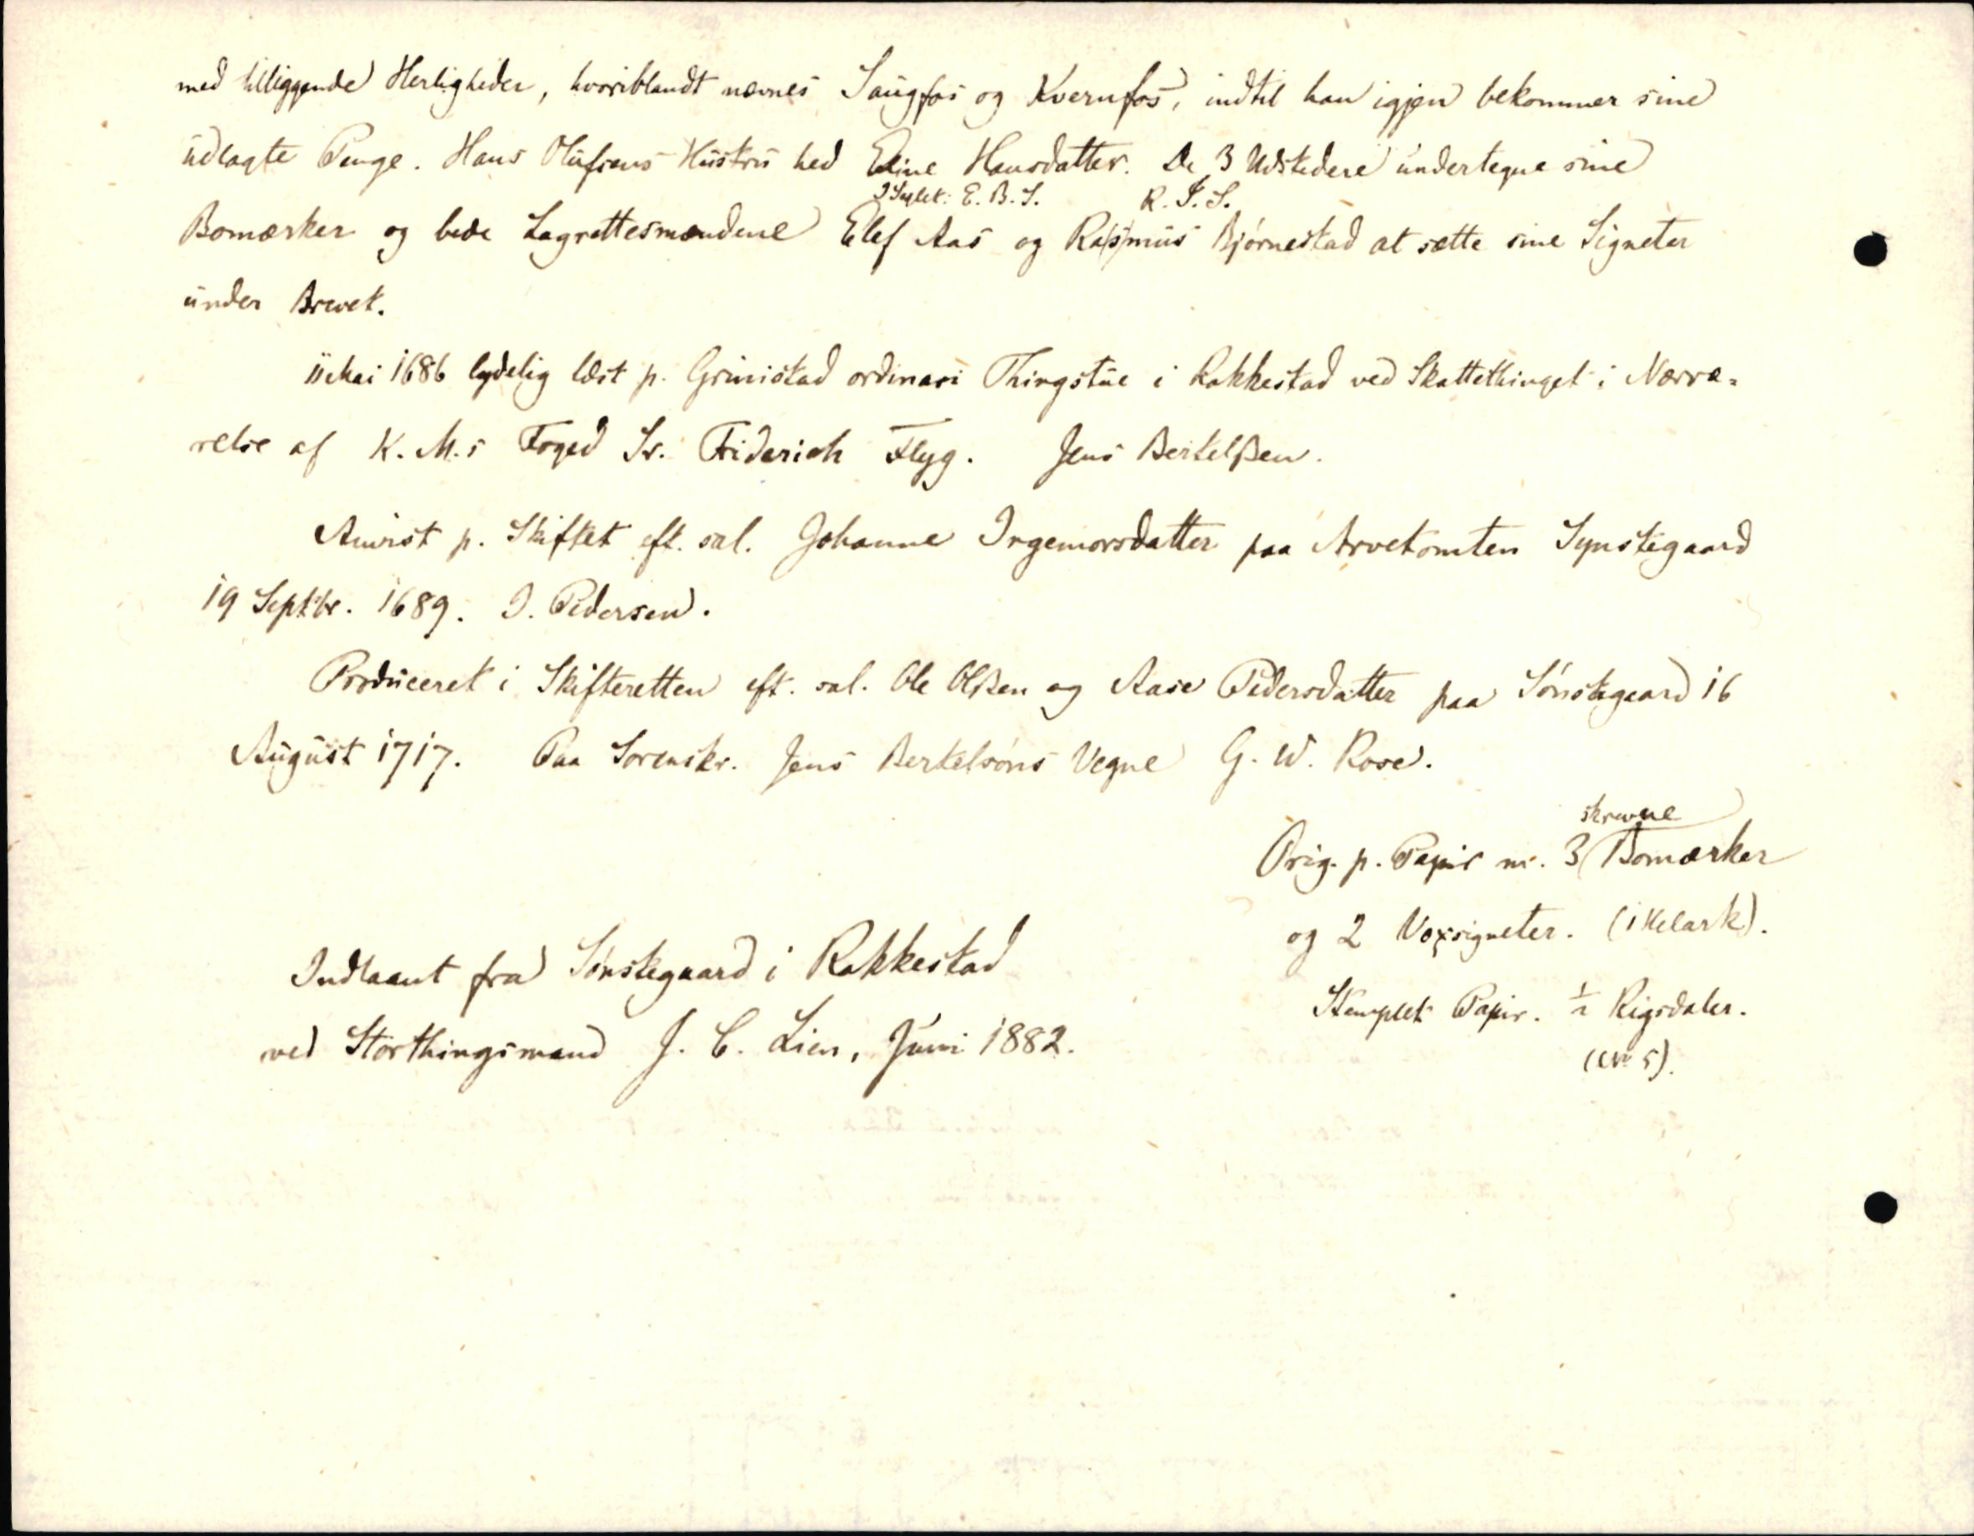 med tilliggende Herligheder, hvoriblandt nævnes Saugfos og Kvernfos, indtil han igjen bekommer sine
udlagte Penge. Hans Olufsens Hustru hed Eline Hansdatter. De 3 Udstedere undertegne sine
I Seglet: E. B. S. R. I. S.
Bomærker og bede Lagrettesmændene Elef Aas og Rasmus Bjørnestad at sætte sine Signeter
under Brevet.
11 Mai 1686 lydelig læst p. Grimstad ordinari Thingstue i Rakkestad ved Skattethinget i Nærvæ-
relse af K. M.s Foged Sr. Friderich Flyg. Jens Bertelßen.
Anvist p. Skiftet eft. sal. Johanne Ingemorsdatter paa Arvetomten Synstegaard
19 Septbr. 1689. I. Pedersen.
Produceret i Skifteretten eft. sal. Ole Olßen og Aase Pedersdatter paa Sønstegaard 16
August 1717. Paa Sorenskr. Jens Bertelsøns Vegne G. W. Rose.
skrevne
Orig. p. Papir m. 3 Bomærker
og 2 Voxsigneter. (1 Helark).
Stemplet Papir. ½ Rigsdaler.
(No 5).
Indlaant fra Sønstegaard i Rakkestad
ved Storthingsmand J. C. Lien, Juni 1882.